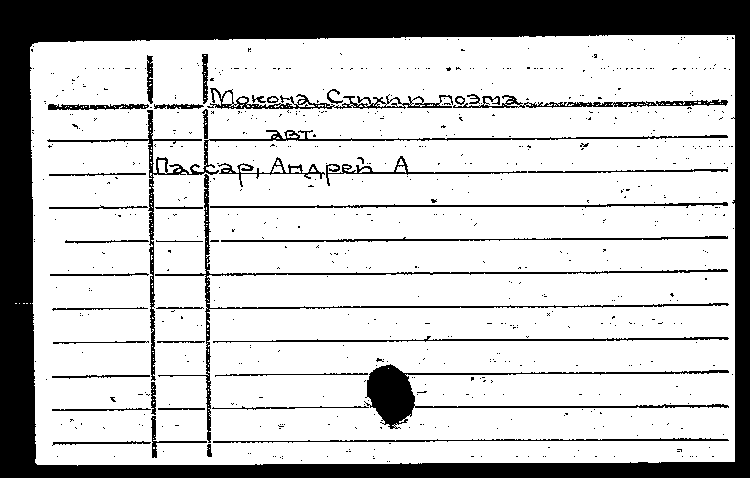 Мокона. Стихи и поэма.
авт.
Пассар, Андрей А